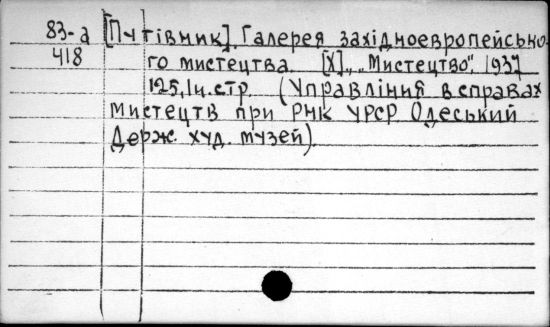 83-а [Путівник]. Галерея західноевропейсько-
418 го мистецтва. [Х]., "Мистецтво", 1937
125, Iн. стр. (Управління в справах
Мистецтв при РНК УРСР Одеський
Держ. худ. музей).